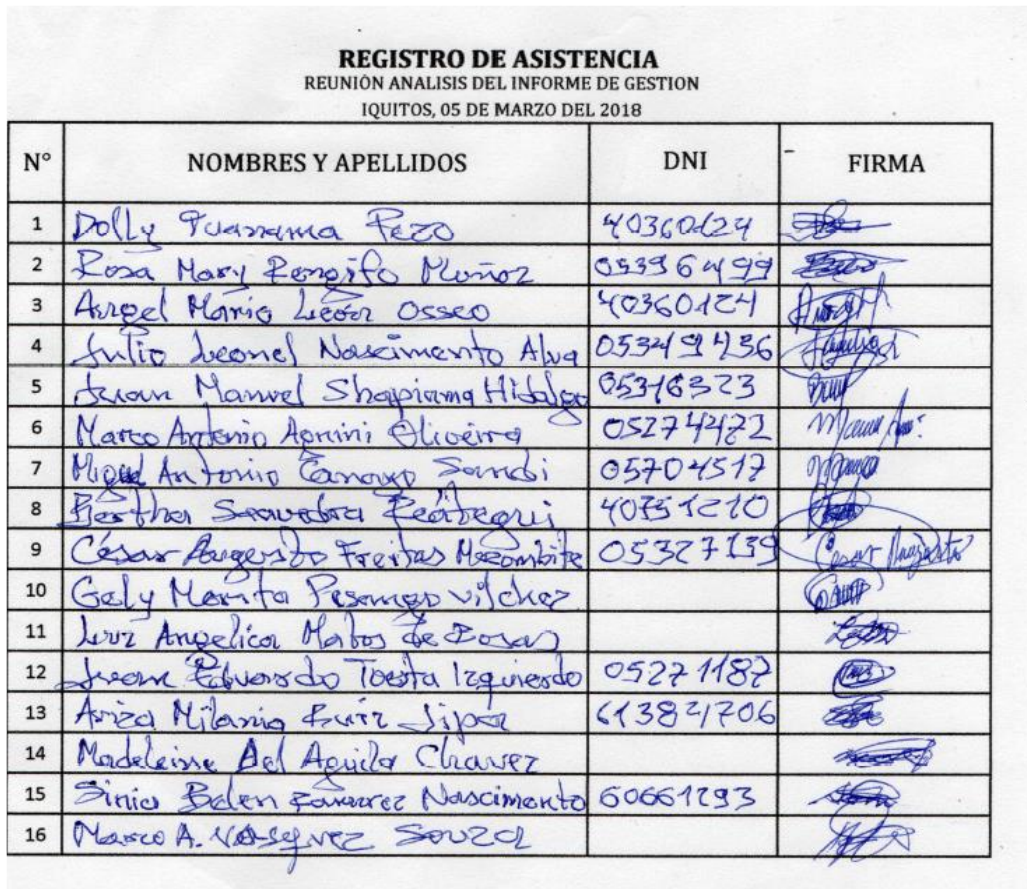 REGISTRO DE ASISTENCIA
REUNIÓN ANALISIS DEL INFORME DE GESTION
IQUITOS, 05 DE MARZO DEL 2018
N° NOMBRES Y APELLIDOS DNI FIRMA
1 Dolly Tuanama Pezo 40360124
2 Rosa Mary Rengifo Muñoz 05396499
3 Angel Mario León Osseo 40360124
4 Julio Leonel Nascimento Alva 05349436
5 Juan Manuel Shapiama Hidalgo 05316323
6 Marco Antonio Oliveira 05274472
7 Miguel Antonio Sandi 05704517
8 Bertha Saavedra Reátegui
9 César Augusto Freitas 05327139 Cesar Augusto
10 Gely Marita Pisango Vilchez
11 Luz Angelica Matos de
12 Juan Eduardo Izquierdo 05271187
13 Milania Ruiz 61384706
14 Madeleine Del Aguila Chavez
15 Belen Nascimento 60661293
16 Marco A. Vásquez Souza